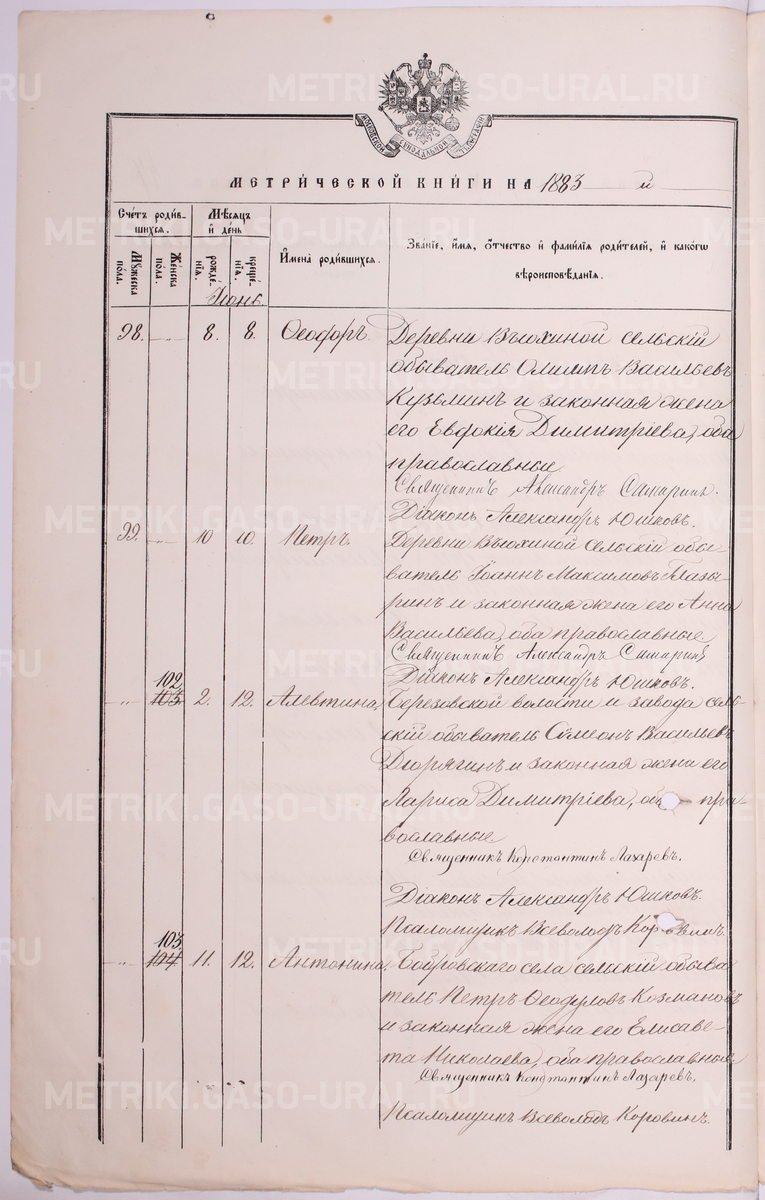 МОСКОВСКОЙ СѴНОДАЛЬНОЙ ТИПОГРАФІИ
МЕТРИЧЕСКОЙ КНИГИ НА 1883 й
Счетъ родив-
шихся.
Мѣсяцъ
и день
Имена родившихся.
Званіе, имя, отчество и фамилія родителей, и какого
вѣроисповѣданія.
Мужеска пола.
Женска пола.
рождѐнія.
крещенія.
Іюнь.
98. — 8. 8. Ѳеодоръ. Деревни Вьюхиной сельскій
обыватель Олимпъ Васильевъ
Кузьминъ и законная жена
его Евдокія Димитріева, оба
православные
Священникъ Александръ Самаринъ.
Діаконъ Александръ Юшковъ.
99. — 10 10. Петръ. Деревни Вьюхиной сельскій обы-
ватель Іоаннъ Максимовъ Глазы-
ринъ и законная жена его Анна
Васильева, оба православные.
Священникъ Александръ Самаринъ
Діаконъ Александръ Юшковъ.
102
„ 103 2. 12. Алевтина, Березовской волости и завода сель-
скій обыватель Сѵмеонъ Васильевъ
Дюрягинъ и законная жена его
Лариса Димитріева, оба пра-
вославные
Священникъ Константинъ Лазаревъ.
Діаконъ Александръ Юшковъ.
Псаломщикъ Всеволодъ Коровинъ.
103
„ 104 11. 12. Антонина, Бобровскаго села сельскій обыва
тель Петръ Ѳеодуловъ Козмановъ
и законная жена его Елисаве-
та Николаева, оба православные
Священникъ Константинъ Лазаревъ.
Псаломщикъ Всеволодъ Коровинъ.
METRIKI.GASO-URAL.RU